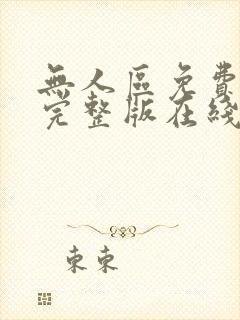 無人區免費
完整版在綫
東東